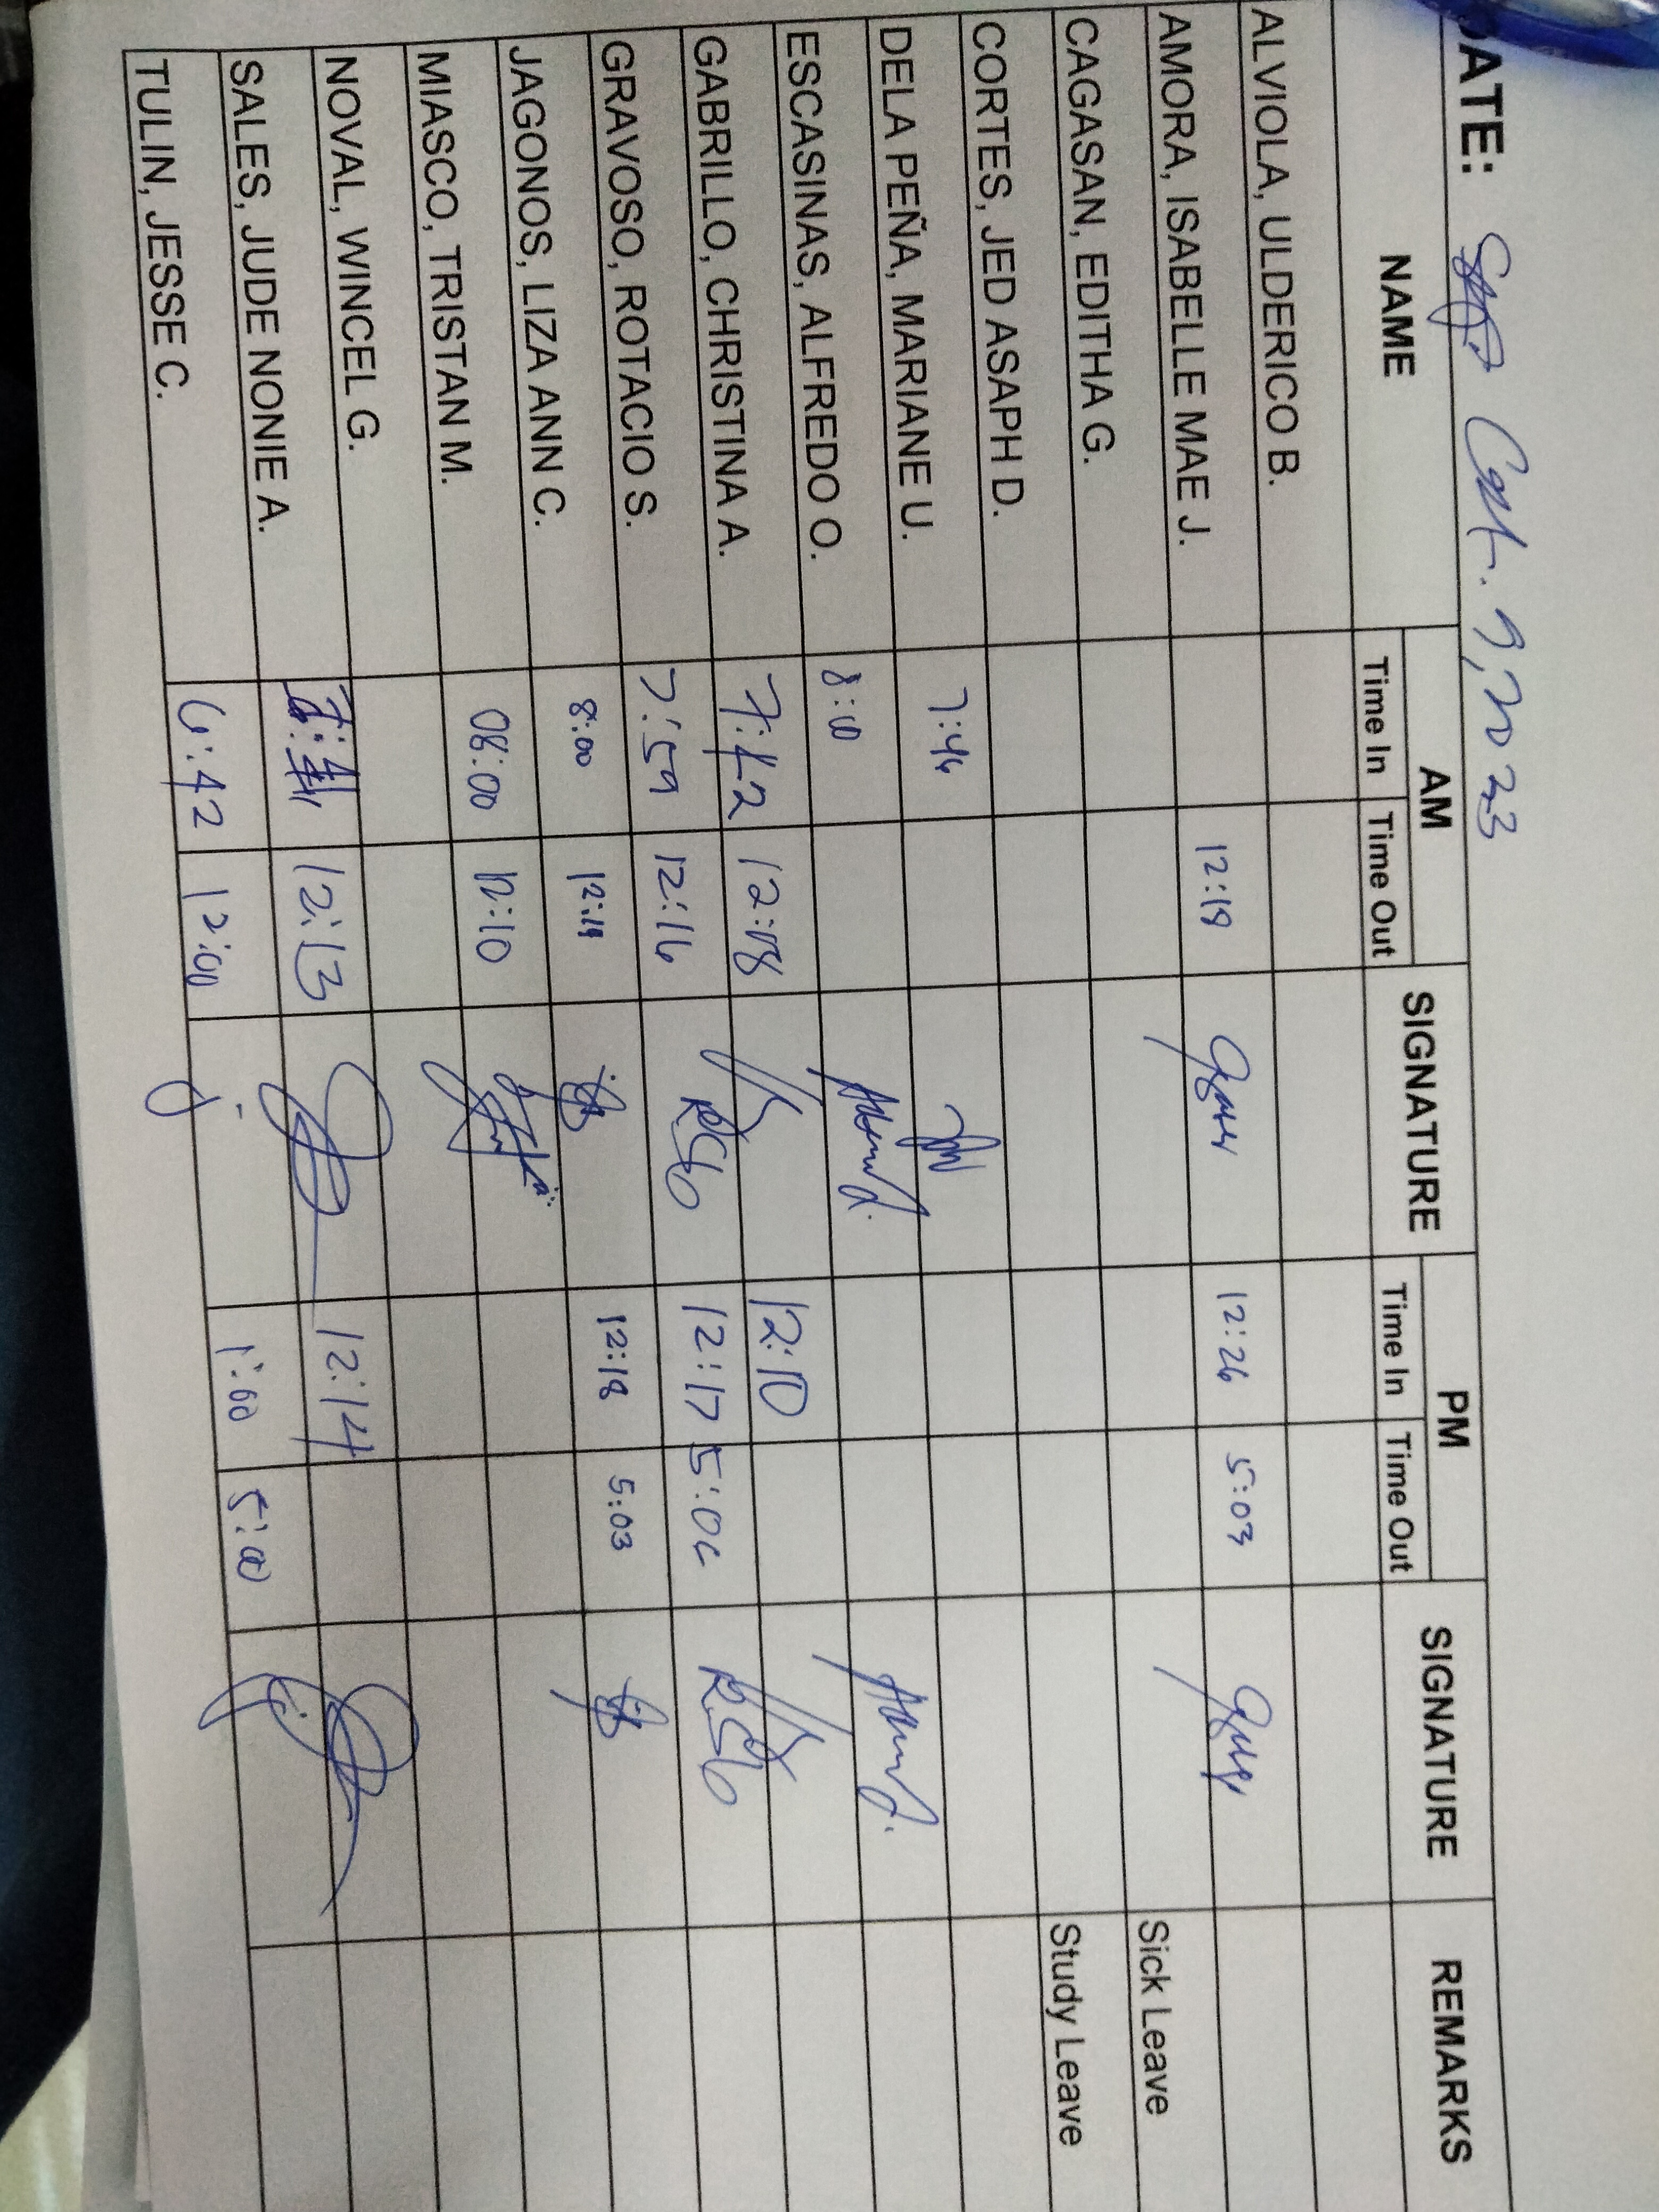 DATE: Oct. 9, 2023
NAME AM SIGNATURE PM SIGNATURE REMARKS
Time In Time Out Time In Time Out
ALVIOLA, ULDERICO B.
AMORA, ISABELLE MAE J. 12:19 12:26 5:03
CAGASAN, EDITHA G. Sick Leave
CORTES, JED ASAPH D. Study Leave
DELA PEÑA, MARIANE U. 7:46
ESCASINAS, ALFREDO O. 8:00
GABRILLO, CHRISTINA A. 7:42 12:08 12:10
GRAVOSO, ROTACIO S. 7:59 12:16 12:17 5:06
JAGONOS, LIZA ANN C. 8:00 12:18 5:03
MIASCO, TRISTAN M. 08:00 12:10
NOVAL, WINCEL G.
SALES, JUDE NONIE A. 12:13 12:14
TULIN, JESSE C. 6:42 12:00 1:00 5:00